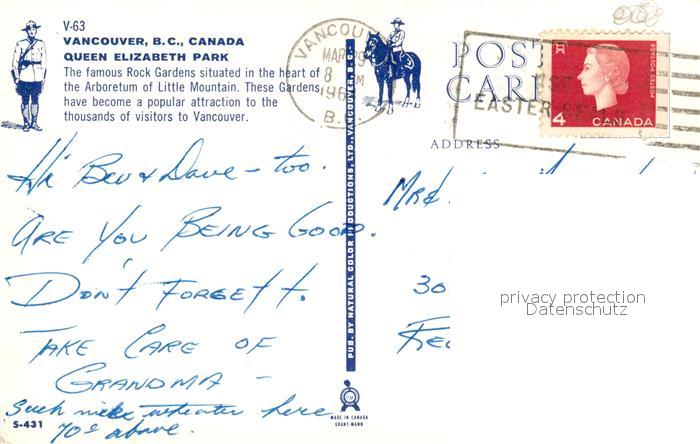 V-63
VANCOUVER, B.C., CANADA
QUEEN ELIZABETH PARK
The famous Rock Gardens situated in the heart of
the Arboretum of Little Mountain. These Gardens
have become a popular attraction to the
thousands of visitors to Vancouver.
Hi Bev & Dave - too.
ARE YOU BEING GOOD.
DON'T FORGET!
TAKE CARE OF
GRANDMA -
Such nice weather here
70s above.
S-431
PUB. BY NATURAL COLOR PRODUCTIONS, LTD., VANCOUVER, B.C.
MADE IN CANADA
GRANT MANN
VANCOUVER
MAR
8 PM
196
B.
POST
CARD
USE
EASTER SEALS
4 CANADA
POSTES POSTAGE
ADDRESS
Mr &
30
privacy protection
Datenschutz